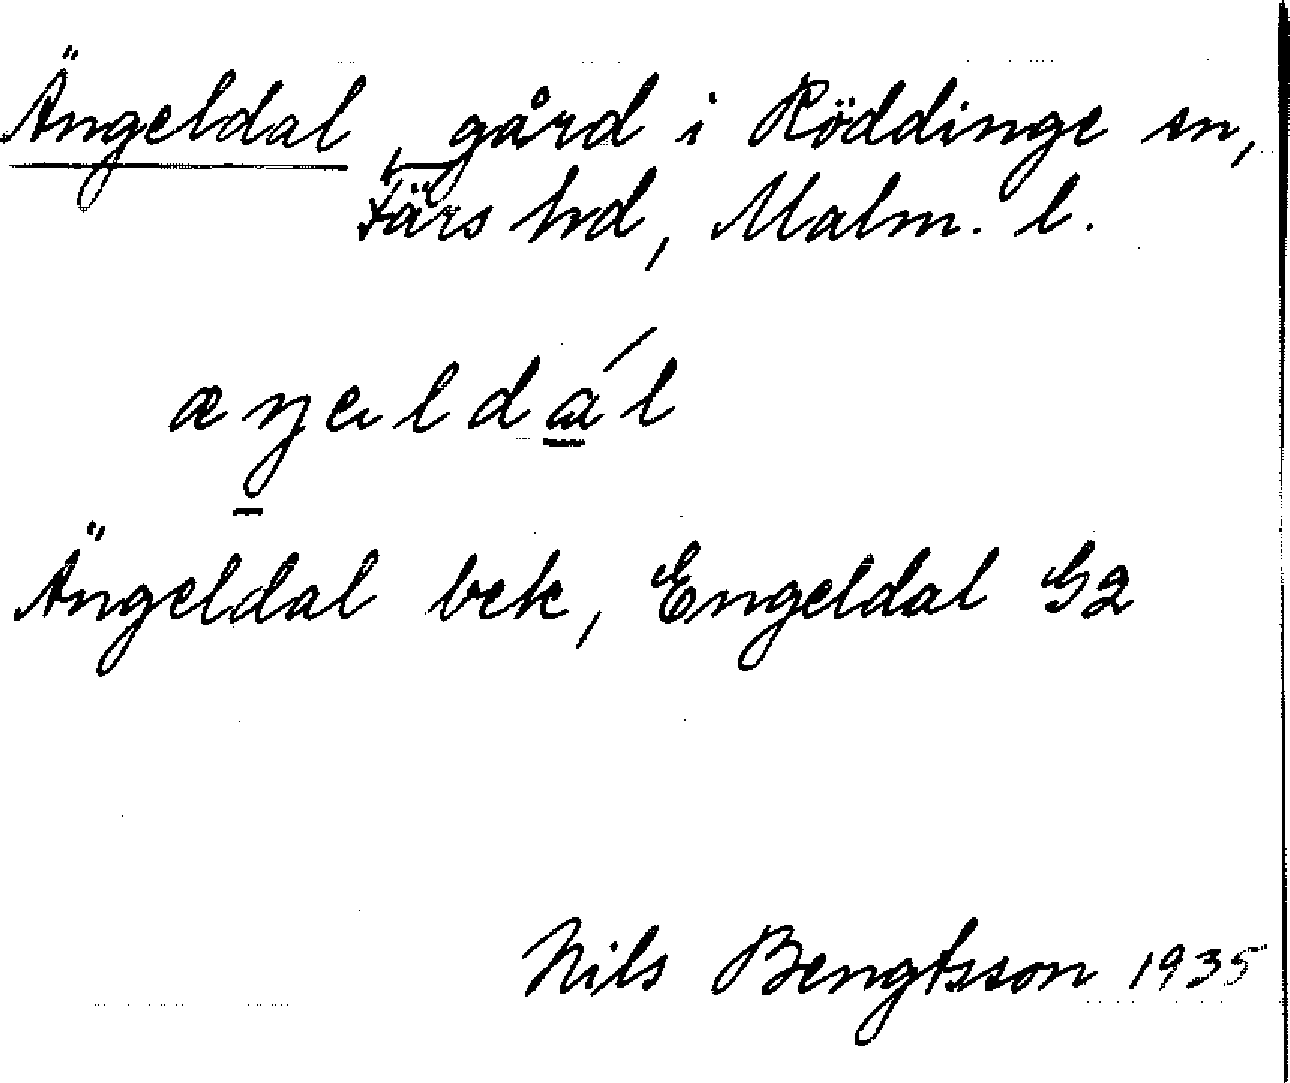 Ängeldal, gård i Röddinge sn,
Färs hd, Malm. l.
æŋeldál
Ängeldal bek, Engeldal G2
Nils Bengtsson 1935